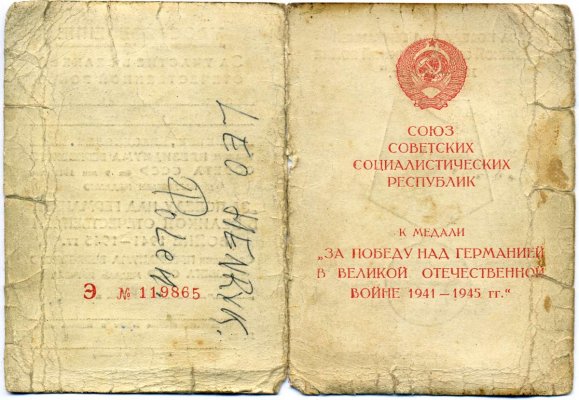 LEO HENRYK.
Polen
Э № 119865
СОЮЗ
СОВЕТСКИХ
СОЦИАЛИСТИЧЕСКИХ
РЕСПУБЛИК
К МЕДАЛИ
„ЗА ПОБЕДУ НАД ГЕРМАНИЕЙ
В ВЕЛИКОЙ ОТЕЧЕСТВЕННОЙ
ВОЙНЕ 1941—1945 гг.“